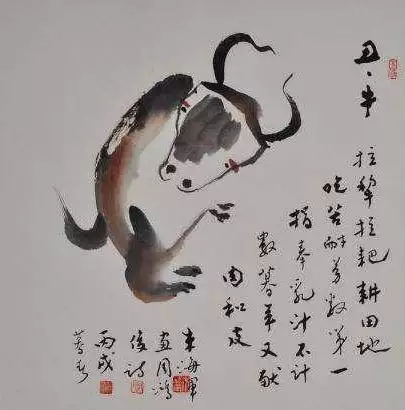 丑、牛
拉犁拉耙耕田地
吃苦耐劳数第一
捐奉乳汁不计
数暮年又献
肉和皮
朱海軍
画周鸿
俊诗
丙戌
暮春